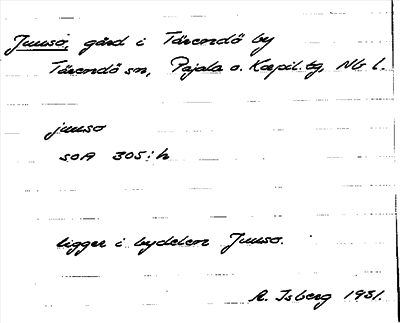 Juuso, gård i Tärendö by
Tärendö sn, Pajala o. Korpil. tg, Nb l.
juuso
SOA 305:h
ligger i bydelen Juuso.
R. Isberg 1931.